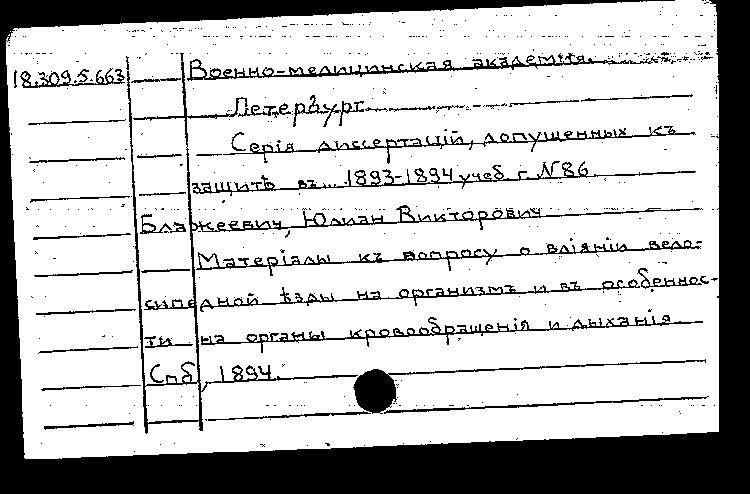 18.309.5.663 Военно-медицинская академия.
Петербург.
Серія диссертацій, допущенных къ
защитѣ въ... 1893-1894 учеб. г. N 86.
Блажеевич, Юлиан Викторович
Матеріалы къ вопросу о вліяніи вело-
сипедной ѣзды на организмъ и въ особеннос-
ти на органы кровообращенія и дыханія.
Спб, 1894.